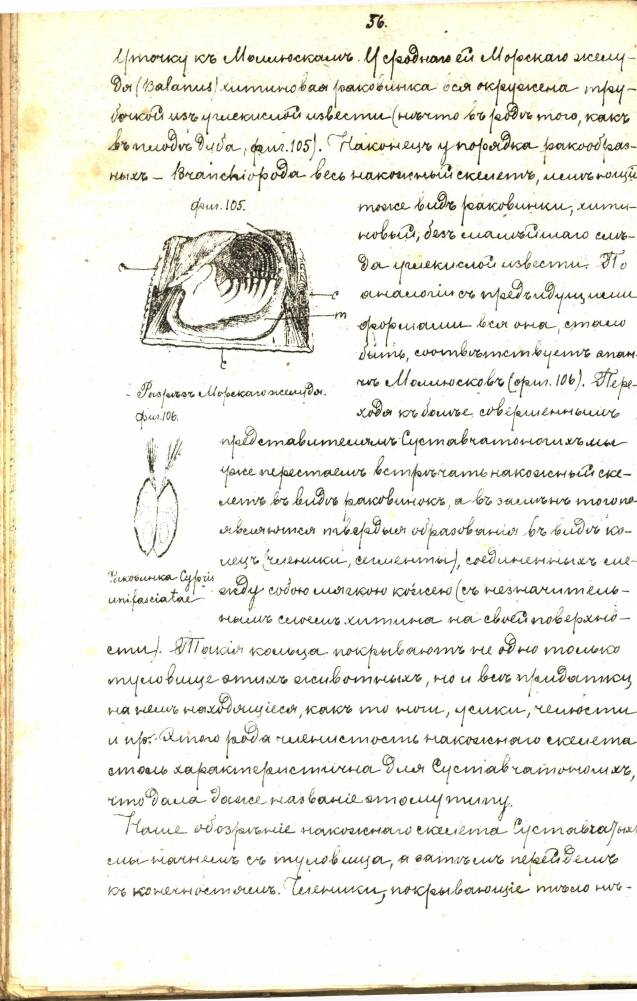 56.
Уточку къ Моллюскамъ. У сроднаго ей Морскаго желу-
дя (Balanus) хитиновая раковинка вся окружена тру-
бочкой изъ углекислой извести (нѣчто въ родѣ того, какъ
въ плодѣ дуба, фиг. 105). Наконецъ у порядка ракообраз-
ныхъ – Branchiopoda весь накожный скелетъ, имѣющій
фиг. 105.
тоже видъ раковинки, хити-
новый, безъ малѣйшаго слѣ-
да углекислой извести. По
аналогіи съ предъидущими
формами вся она, стало
быть, соотвѣтствуетъ епан-
чѣ Моллюсковъ (фиг. 106). Пере-
ходя къ болѣе совершеннымъ
c
c
m
c
- Разрѣзъ Морскаго желудя.
Фиг. 106.
представителямъ Суставчатоногихъ мы
уже перестаемъ встрѣчать накожный ске-
летъ въ видѣ раковинокъ, а въ замѣнъ того по-
являются твердыя образованія въ видѣ ко-
лецъ (членики, сегменты), соединенныхъ ме-
жду собою мягкою кожею (съ незначитель-
нымъ слоемъ хитина на своей поверхно-
Раковинка Cypris
unifasciatae
сти). Такія кольца покрываютъ не одно только
туловище этихъ животныхъ, но и всѣ придатки
на немъ находящіеся, какъ то ноги, усики, челюсти
и пр. Этого рода членистость накожнаго скелета
столь характеристична для Суставчатоногихъ,
что дала даже названіе этому типу.
Наше обозрѣніе накожнаго скелета Суставчатыхъ
мы начнемъ съ туловища, а затѣмъ перейдемъ
къ конечностямъ. Членики, покрывающіе тѣло нѣ-